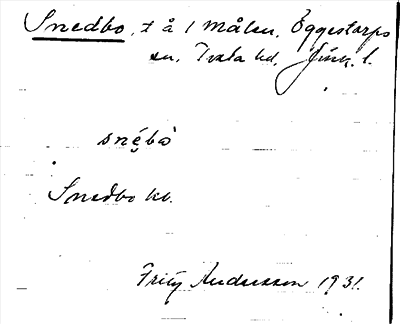 Snedbo, t å 1 Målen, Öggestorps
sn. Tveta hd, Jönk. l.
snébò
Snedbo kb.
Fritz Andersson 1931.